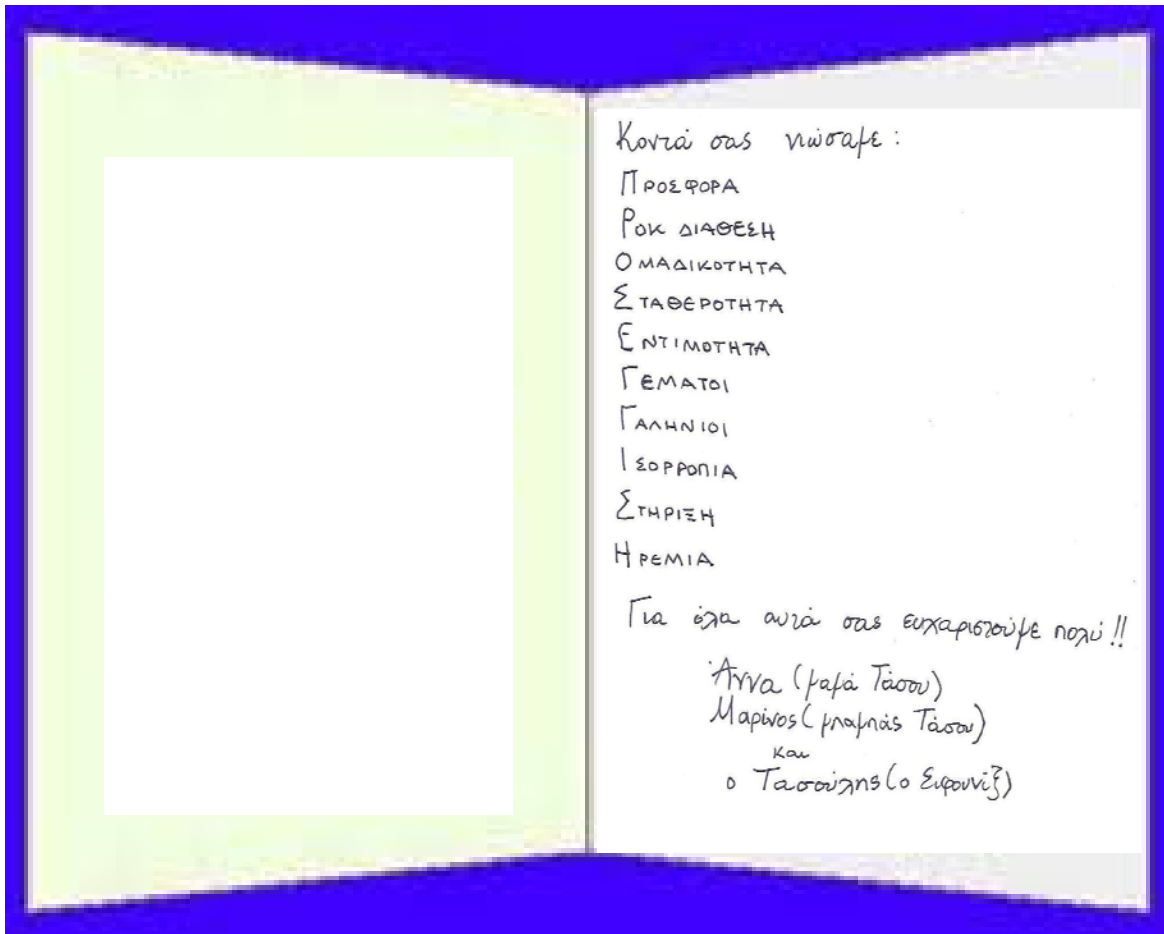 Κοντά σας νιώσαμε:
ΠΡΟΣΦΟΡΑ
ΡΟΚ ΔΙΑΘΕΣΗ
ΟΜΑΔΙΚΟΤΗΤΑ
ΣΤΑΘΕΡΟΤΗΤΑ
ΕΝΤΙΜΟΤΗΤΑ
ΓΕΜΑΤΟΙ
ΓΑΛΗΝΙΟΙ
ΙΣΟΡΡΟΠΙΑ
ΣΤΗΡΙΞΗ
ΗΡΕΜΙΑ
Για όλα αυτά σας ευχαριστούμε πολύ!!
Άννα (μαμά Τάσου)
Μαρίνος (μπαμπάς Τάσου)
και
ο Τασούλης (ο